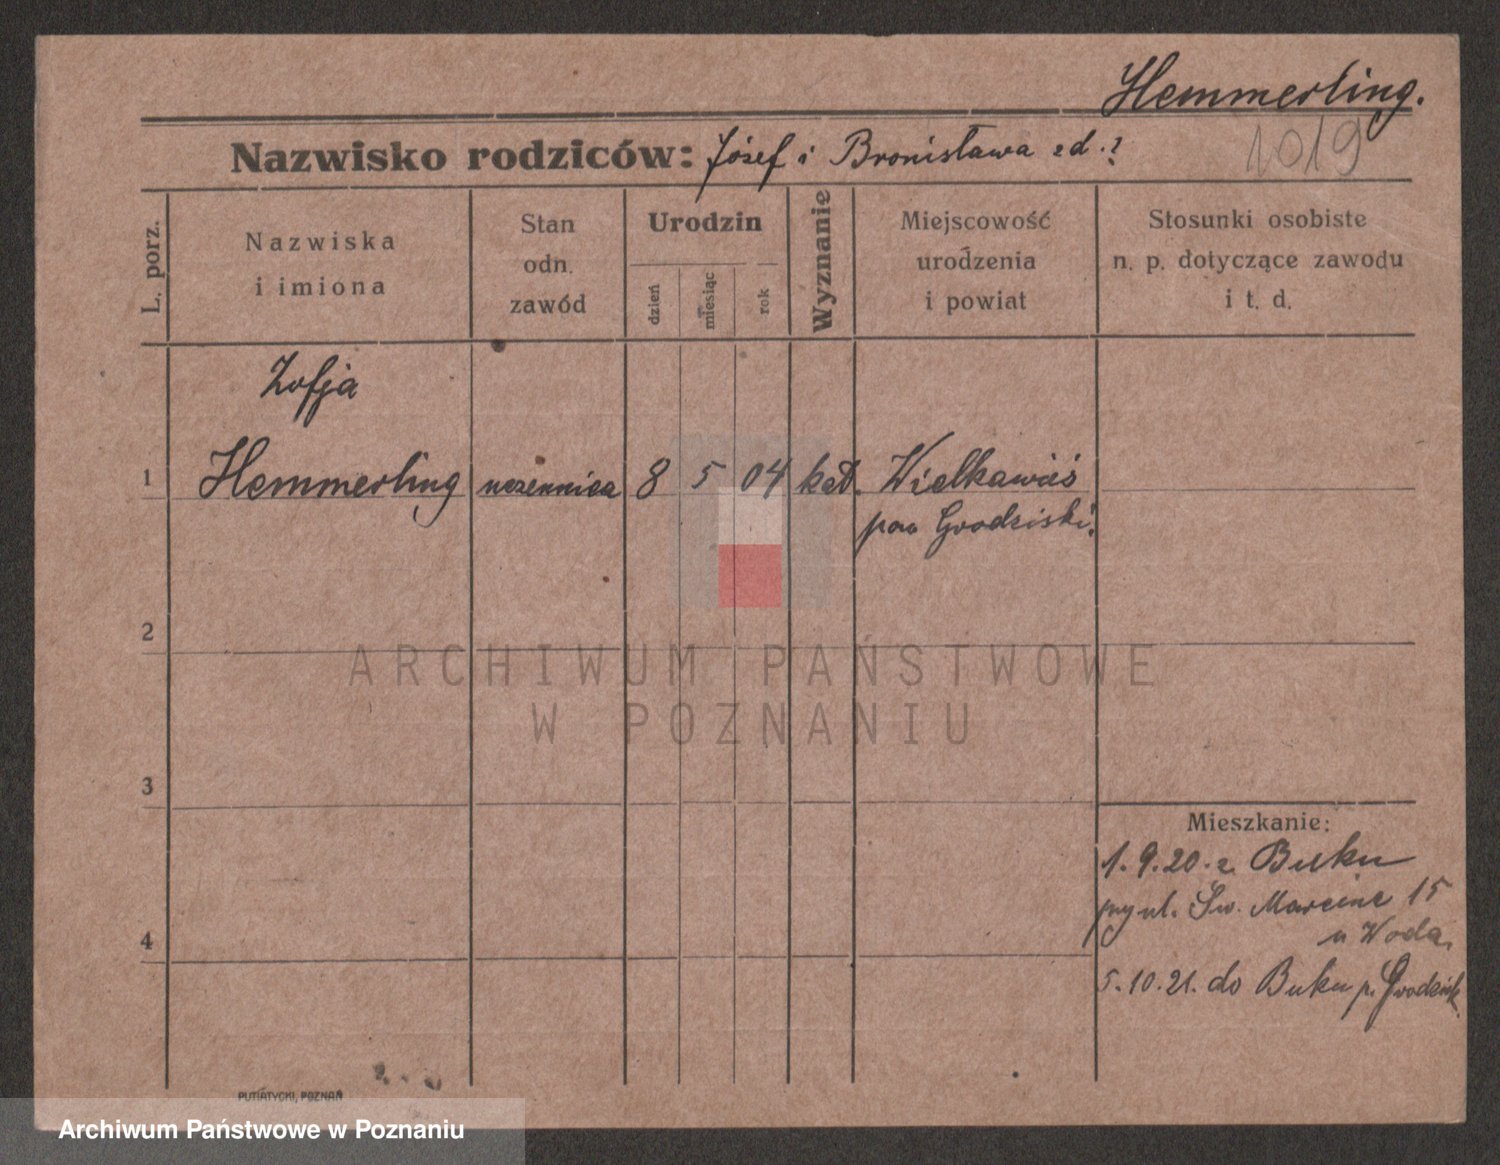 Hemmerling.
1019
Nazwisko rodziców: Józef i Bronisława zd.?
L. porz.
Nazwiska
i imiona
Stan
odn.
zawód
Urodzin
dzień
miesiąc
rok
Wyznanie
Miejscowość
urodzenia
i powiat
Stosunki osobiste
n. p. dotyczące zawodu
i t. d.
Zofja
1 Hemmerling uczennica 8 5 04 kat. Wielkawieś
pow Grodziski.
2
ARCHIWUM PAŃSTWOWE
W POZNANIU
3
Mieszkanie:
1.9.20. z Buku
przy ul. Św. Marcinc 15
u Woda.
4
5.10.21. do Buku p. Grodzisk.
PUTIATYCKI, POZNAŃ
Archiwum Państwowe w Poznaniu